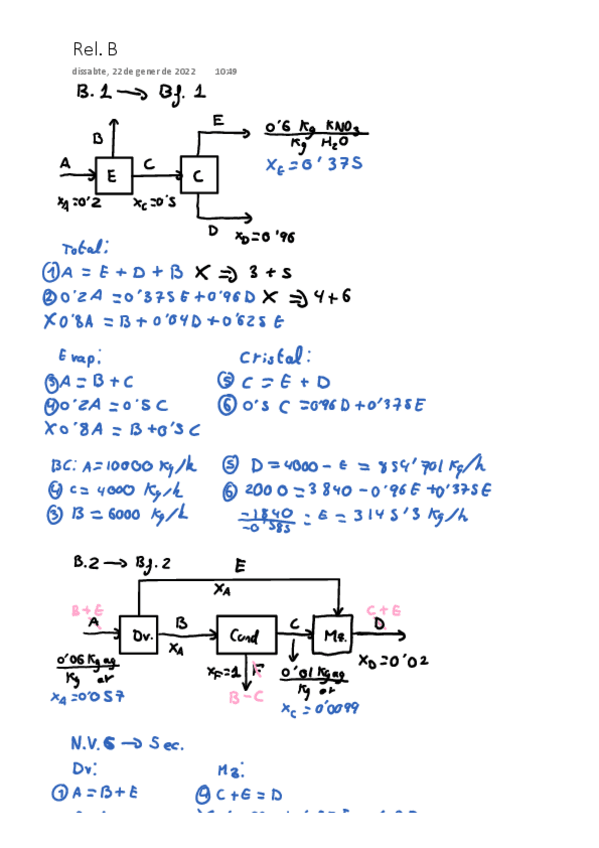 Rel. B
dissabte, 22 de gener de 2022 10:49
B.1 → Bf. 1
E
0'6 Kg KNO₃
B
Kg H₂O
A
C
X_E = 0'375
E
C
x_A = 0'2
x_C = 0's
D
x_D = 0'96
Total:
① A = E + D + B X ⇒ 3 + 5
② 0'2A = 0'375E + 0'96D X ⇒ 4 + 6
X 0'8A = B + 0'04D + 0'625E
Evap:
Cristal:
③ A = B + C
⑤ C = E + D
④ 0'2A = 0'5C
⑥ 0's C = 0'96D + 0'375E
X 0'8A = B + 0'5C
BC: A = 10000 Kg/h
⑤ D = 4000 - E = 854'701 Kg/h
④ C = 4000 Kg/h
⑥ 2000 = 3840 - 0'96E + 0'375E
③ B = 6000 Kg/h
-1840
-0'585
= E = 3145'3 Kg/h
B.2 → Bf. 2
E
X_A
B+E
C+E
A
B
C
D
Dv.
Cond
Mz.
X_A
0'06 Kg ag
Kg ar
x_F = 1
F
0'01 Kg ag
Kg ar
x_D = 0'02
x_A = 0'057
B-C
x_C = 0'0099
N.V. 6 → Sec.
Dv:
Mz:
① A = B + E
④ C + E = D